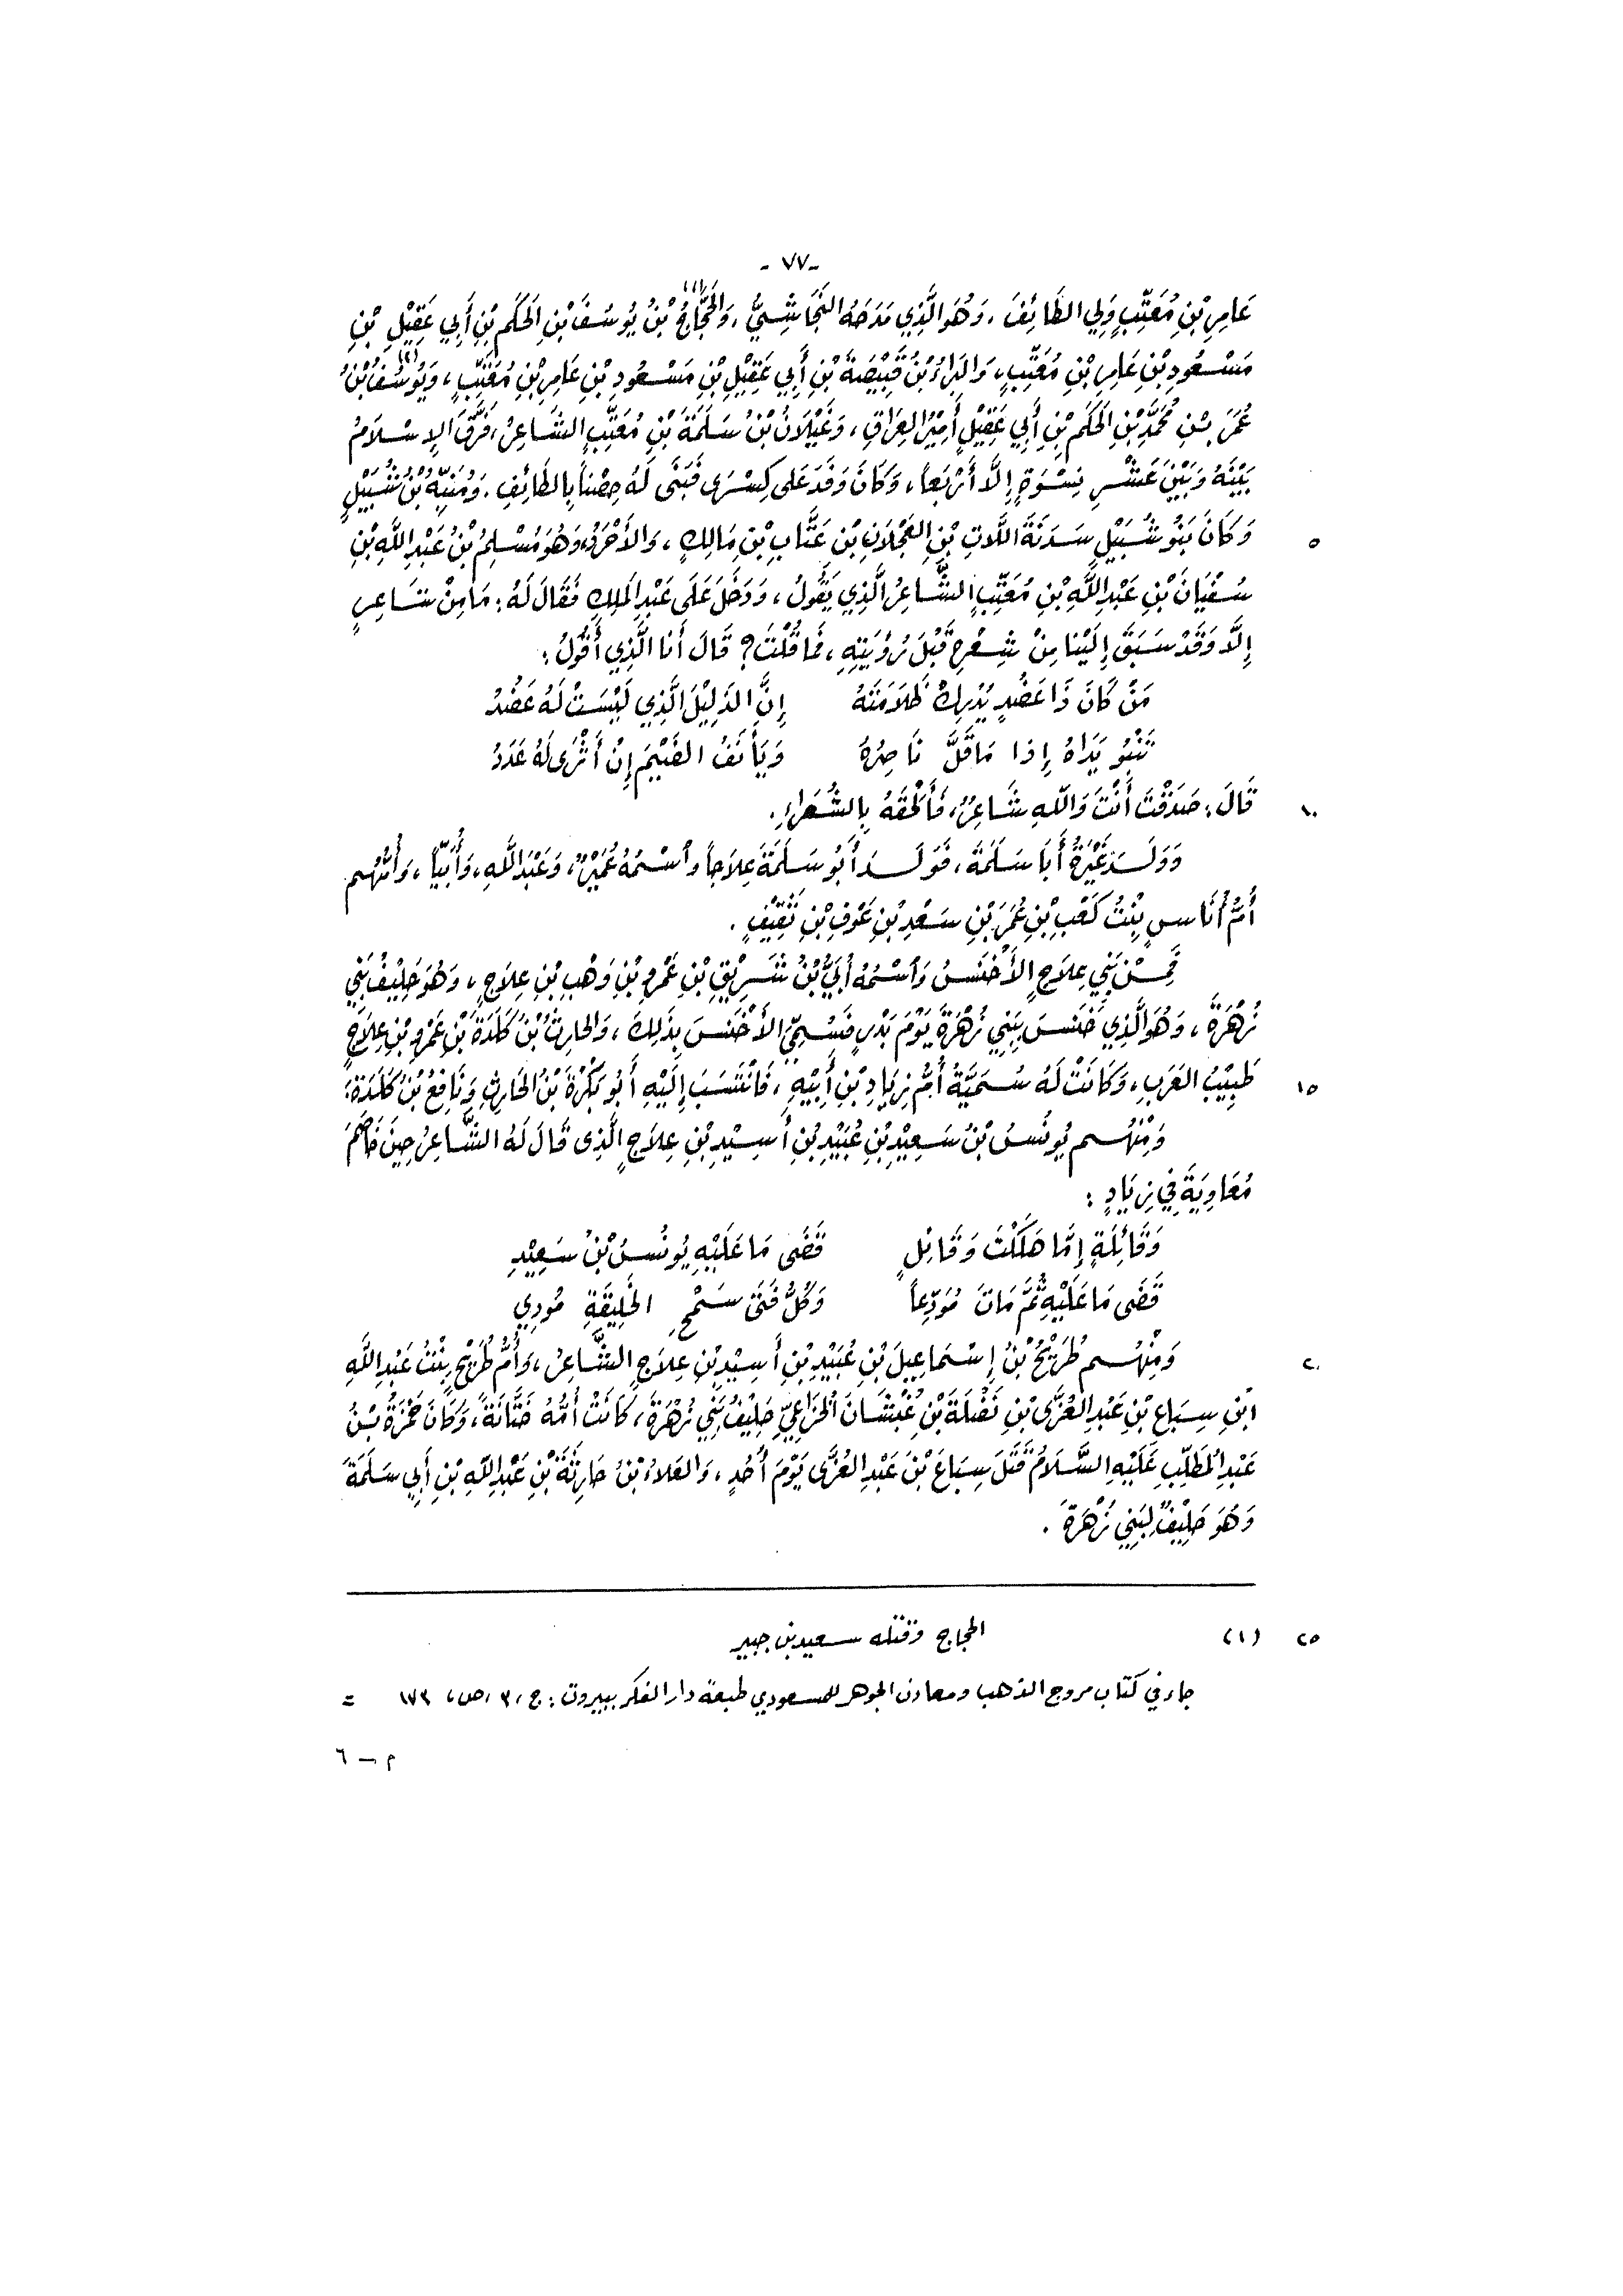 -٧٧-
عَامِرِ بْنِ مُعَتِّبٍ وَلِي الطَّائِفَ، وَهُوَ الَّذِي مَدَحَهُ النَّجَاشِيُّ، وَالحَجَّاجُ(١) بْنُ يُوسُفَ بْنِ الحَكَمِ بْنِ أَبِي عَقِيْلِ بْنِ
مَسْعُودِ بْنِ عَامِرِ بْنِ مُعَتِّبٍ، وَالبَرَاءُ بْنُ قَبِيْصَةَ بْنِ أَبِي عَقِيْلِ بْنِ مَسْعُودِ بْنِ عَامِرِ بْنِ مُعَتِّبٍ، وَيُوسُفُ(٢) بْنُ
عُمَرَ بْنِ مُحَمَّدِ بْنِ الحَكَمِ بْنِ أَبِي عَقِيْلٍ أَمِيْرُ العِرَاقِ، وَغَيْلَانُ بْنُ سَلَمَةَ بْنِ مُعَتِّبٍ الشَّاعِرُ، فَرَّقَ الإِسْلَامُ
بَيْنَهُ وَبَيْنَ عَشْرِ نِسْوَةٍ إِلَّا أَرْبَعاً، وَكَانَ وَفَدَ عَلَى كِسْرَى فَبَنَى لَهُ حِصْناً بِالطَّائِفِ. وَمُنَبِّهُ بْنُ شُبَيْلٍ
وَكَانَ بَنُو شُبَيْلٍ سَدَنَةَ اللَّاتِ بْنِ العَجْلَانِ بْنِ عَتَّابِ بْنِ مَالِكٍ، وَالأَحْرَدُ، وَهُوَ مُسْلِمُ بْنُ عَبْدِ اللَّهِ بْنِ ٥
سُفْيَانَ بْنِ عَبْدِ اللَّهِ بْنِ مُعَتِّبٍ الشَّاعِرُ الَّذِي يَقُولُ، وَدَخَلَ عَلَى عَبْدِ المَلِكِ فَقَالَ لَهُ: مَا مِنْ شَاعِرٍ
إِلَّا وَقَدْ سَبَقَ إِلَيْنَا مِنْ شِعْرِهِ قَبْلَ رُؤْيَتِهِ، فَمَا قُلْتَ؟ قَالَ أَنَا الَّذِي أَقُولُ:
مَنْ كَانَ ذَا عَضُدٍ يُدْرِكْ ظَلَامَتَهُ إِنَّ الذَلِيْلَ الَّذِي لَيْسَتْ لَهُ عَضُدُ
تَنْبُو يَدَاهُ إِذَا مَا قَلَّ نَاصِرُهُ وَيَأْنَفُ الضَّيْمَ إِنْ أَثْرَى لَهُ عَدَدُ
قَالَ: صَدَقْتَ أَنْتَ وَاللَّهِ شَاعِرٌ، فَأَلْحَقَهُ بِالشُّعَرَاءِ. ١٠
وَوَلَدَ غَيْرَةُ أَبَا سَلَمَةَ، فَوَلَدَ أَبُو سَلَمَةَ عِلَاجاً وَاسْمُهُ عُمَيْرٌ، وَعَبْدَ اللَّهِ، وَأُبَيّاً، وَأُمُّهُم
أُمُّ أُنَاسٍ بِنْتُ كَعْبِ بْنِ عُمَرَ بْنِ سَعْدِ بْنِ عَوْفِ بْنِ ثَقِيْفٍ.
فَمِنْ بَنِي عِلَاجٍ الأَخْنَسُ وَاسْمُهُ أُبَيُّ بْنُ شَرِيْقِ بْنِ عَمْرِو بْنِ وَهْبِ بْنِ عِلَاجٍ، وَهُوَ حَلِيْفُ بَنِي
زُهْرَةَ، وَهُوَ الَّذِي خَنَسَ بِبَنِي زُهْرَةَ يَوْمَ بَدْرٍ فَسُمِّيَ الأَخْنَسَ بِذَلِكَ، وَالحَارِثُ بْنُ كَلَدَةَ بْنِ عَمْرِو بْنِ عِلَاجٍ
طَبِيْبُ العَرَبِ، وَكَانَتْ لَهُ سُمَيَّةُ أُمُّ زِيَادِ بْنِ أَبِيْهِ، فَانْتَسَبَ إِلَيْهِ أَبُو بَكْرَةَ بْنُ الحَارِثِ وَنَافِعُ بْنُ كَلَدَةَ: ١٥
وَمِنْهُم يُونُسُ بْنُ سَعِيْدِ بْنِ عُبَيْدِ بْنِ أَسِيْدِ بْنِ عِلَاجٍ الَّذِى قَالَ لَهُ الشَّاعِرُ حِينَ خَاصَمَ
مُعَاوِيَةَ فِي زِيَادٍ:
وَقَائِلَةٍ إِمَّا هَلَكْتَ وَقَائِلٍ قَضَى مَا عَلَيْهِ يُونُسُ بْنُ سَعِيْدِ
قَضَى مَا عَلَيْهِ ثُمَّ مَاتَ مُوَدِّعاً وَكُلُّ فَتَىً سَمْحِ الخَلِيقَةِ مُودِي
وَمِنْهُم طُرَيْحُ بْنُ إِسْمَاعِيلَ بْنِ عُبَيْدِ بْنِ أَسِيْدِ بْنِ عِلَاجٍ الشَّاعِرُ، وَأُمُّ طُرَيْحٍ بِنْتُ عَبْدِ اللَّهِ ٢٠
ابْنِ سِبَاعِ بْنِ عَبْدِ العُزَّى بْنِ نَضْلَةَ بْنِ غُبْشَانَ الخُزَاعِيِّ حَلِيْفُ بَنِي زُهْرَةَ، كَانَتْ أُمُّهُ خَتَّانَةً، وَكَانَ حَمْزَةُ بْنُ
عَبْدِ المُطَّلِبِ عَلَيْهِ السَّلَامُ قَتَلَ سِبَاعَ بْنَ عَبْدِ العُزَّى يَوْمَ أُحُدٍ، وَالعَلَاءُ بْنُ حَارِثَةَ بْنِ عَبْدِ اللَّهِ بْنِ أَبِي سَلَمَةَ
وَهُوَ حَلِيْفٌ لِبَنِي زُهْرَةَ.
(١) الحجاج وقتله سعيد بن جبير ٢٥
جاء في كتاب مروج الذهب ومعادن الجوهر للمسعودي طبعة دار الفكر ببيروت: ج، ٣، ص، ١٧٣ =
م - ٦